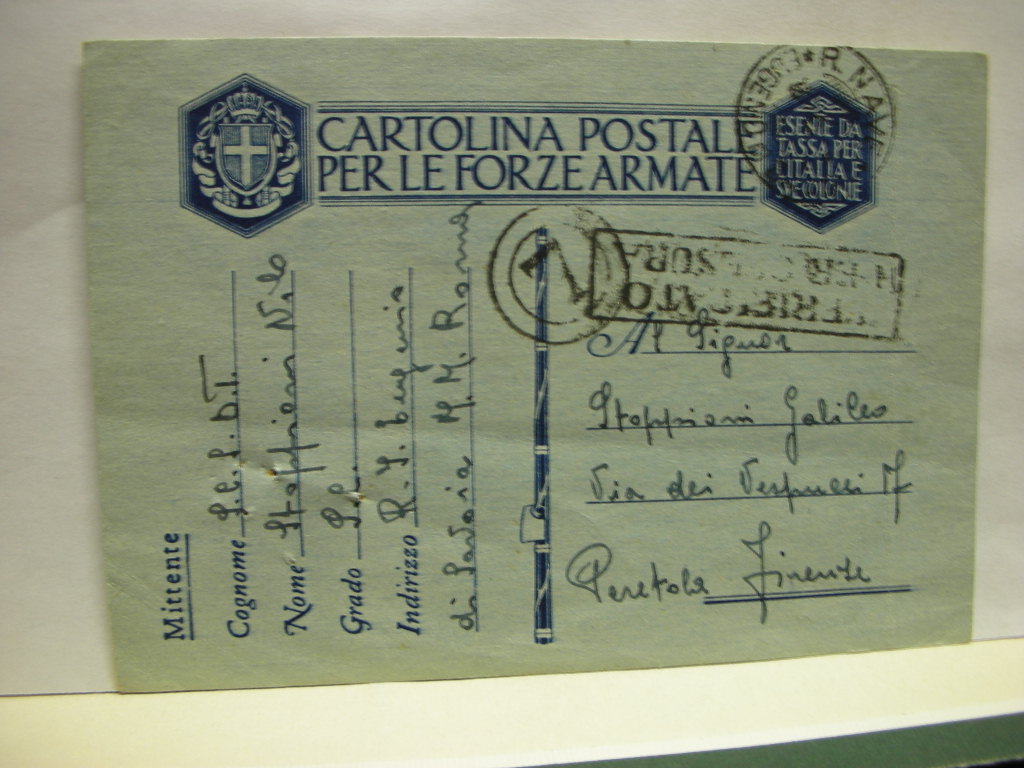 CARTOLINA POSTALE
PER LE FORZE ARMATE
ESENTE DA
TASSA PER
L'ITALIA E
SVE COLONIE
R. NAVE
VERIFICATO
PER CENSURA
Mittente
Cognome
Nome Stoppioni Nilo
Grado
Indirizzo R. I. Eugenio
di Savoia M.M. Roma
Al Signor
Stoppioni Galileo
Via dei Vespucci
Peretola Firenze